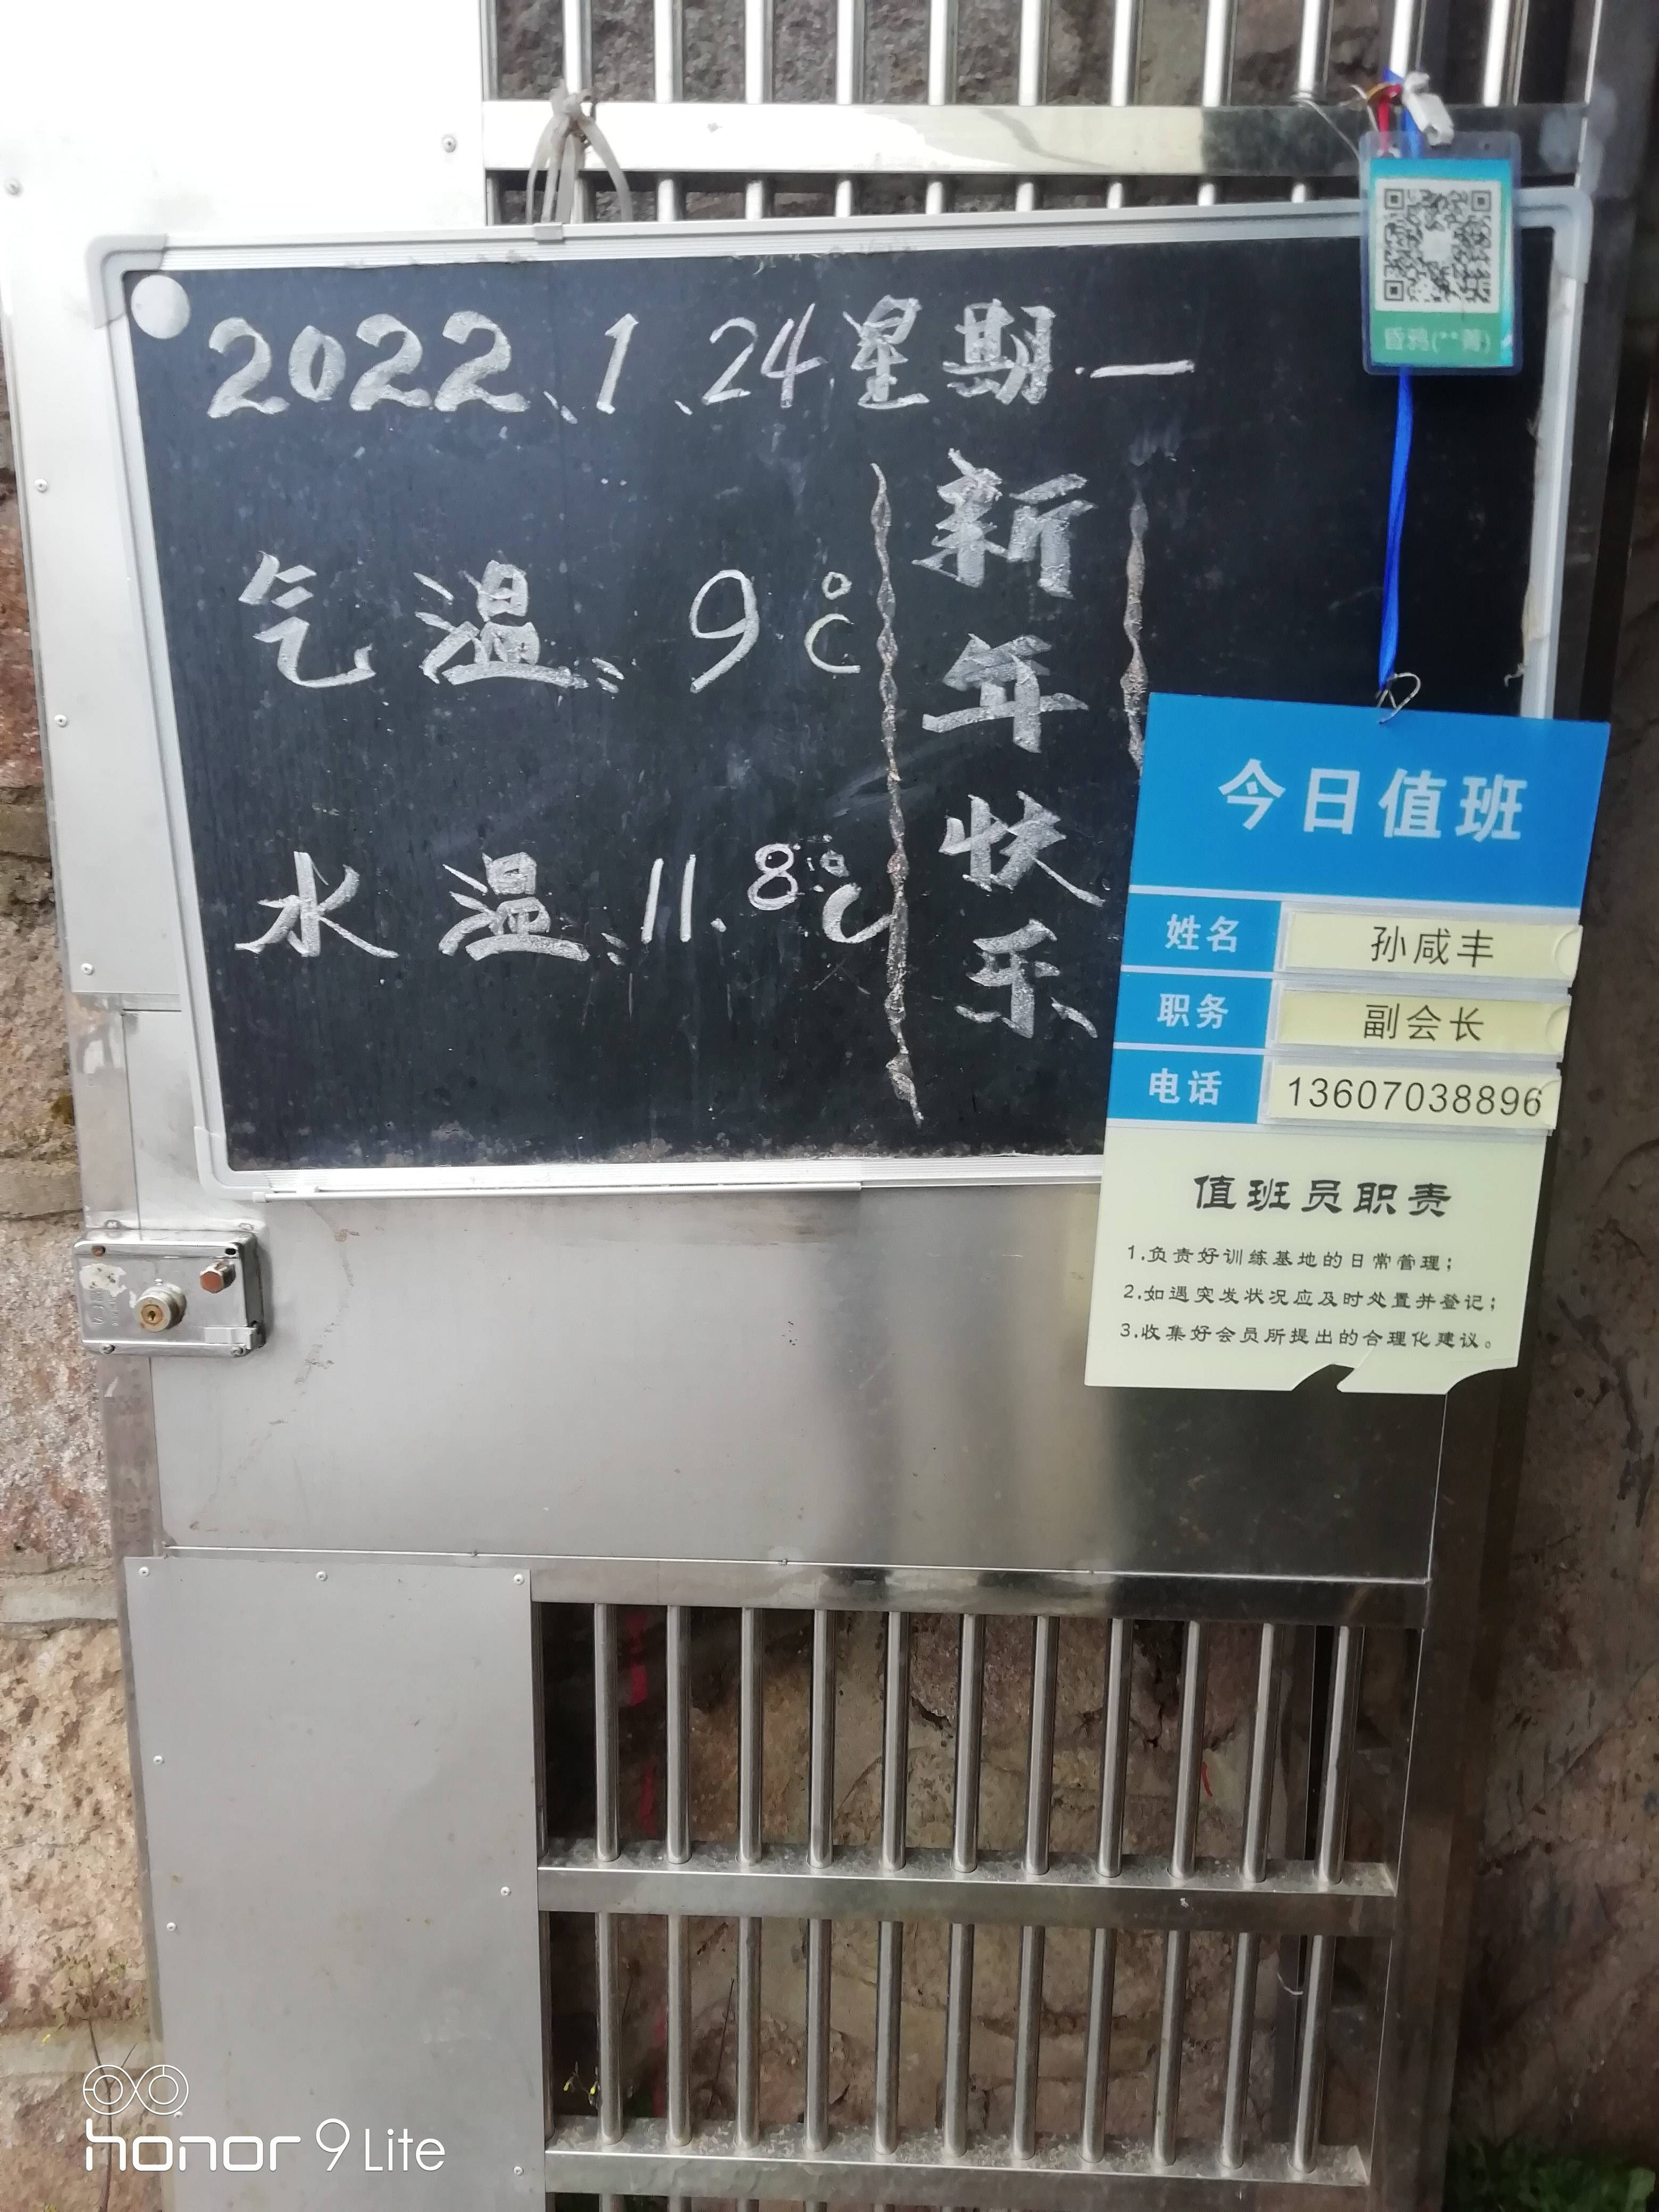 2022、1、24星期一
气温: 9℃
水温: 11.8℃
新年快乐
昏鸦(**菁)
今日值班
姓名 孙咸丰
职务 副会长
电话 13607038896
值班员职责
1.负责好训练基地的日常管理;
2.如遇突发状况应及时处置并登记;
3.收集好会员所提出的合理化建议。
honor 9 Lite